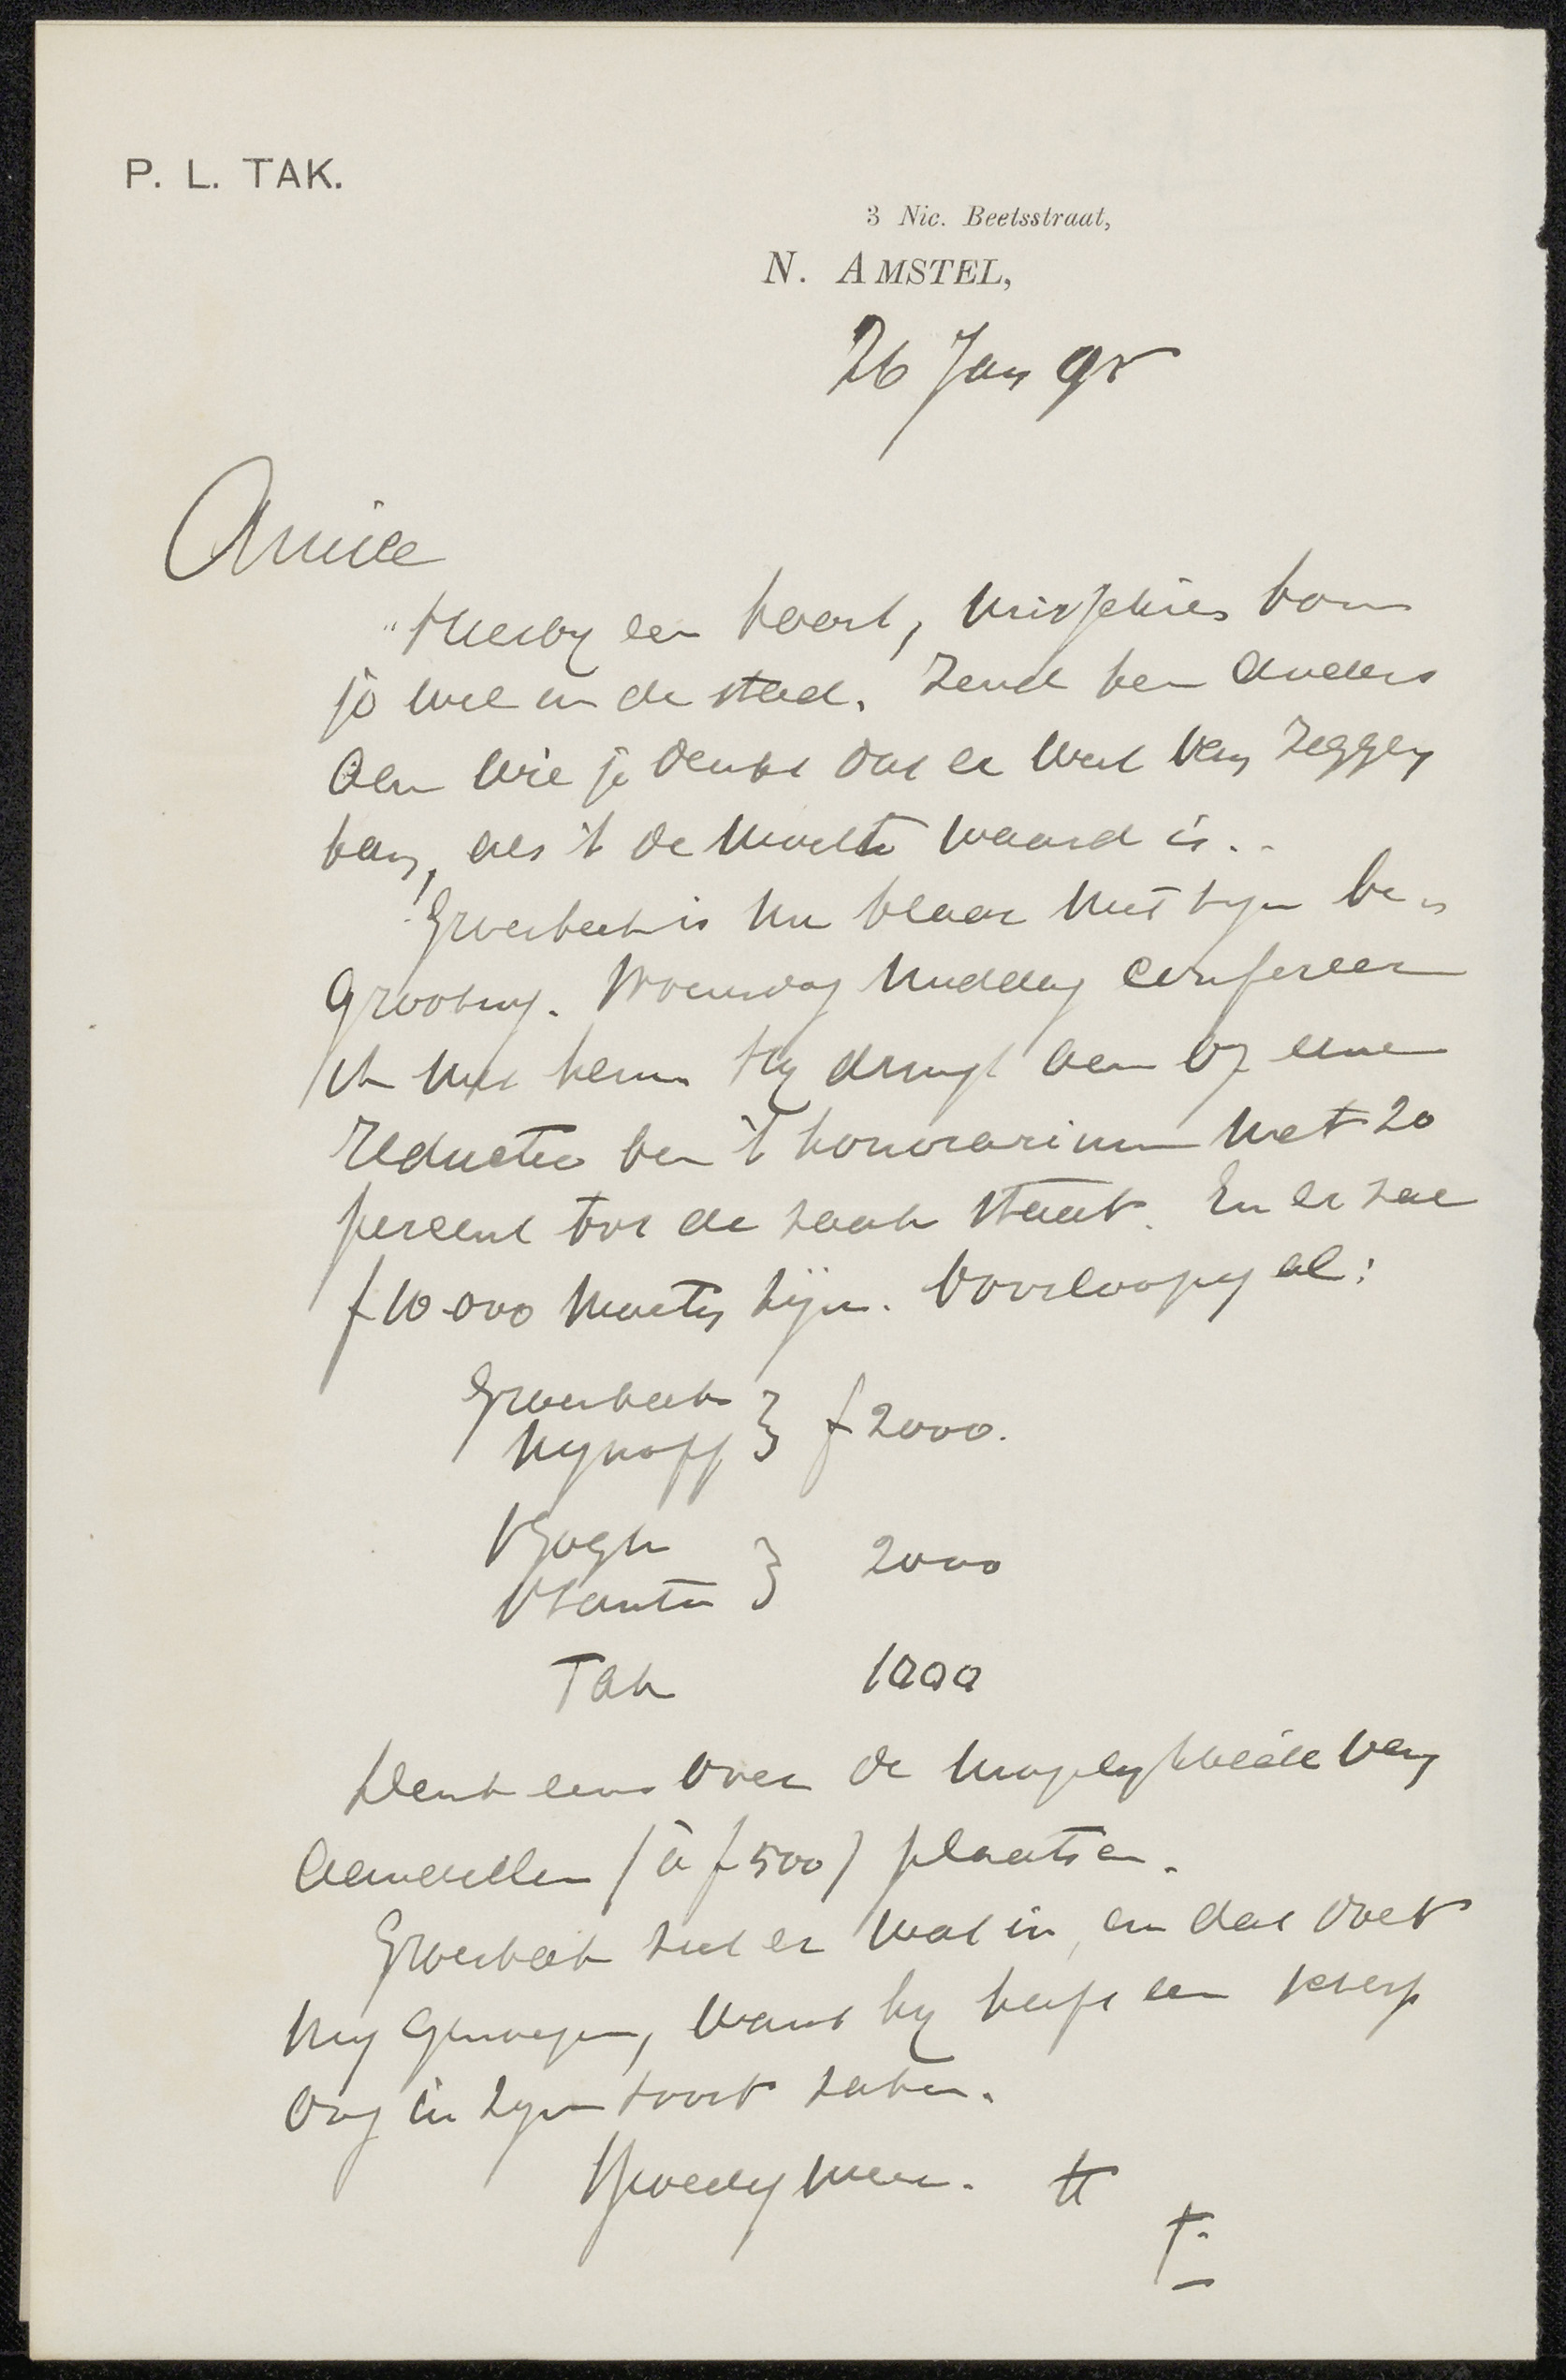 P. L. TAK.
3 Nic. Beetsstraat,
N. AMSTEL,
26 Jan 95
Amice
Hierby een kaart, misschien kom
je wel in de stad. Zend hem anders
aan wie je denkt dat er wat van zeggen
kan, als 't de moeite waard is..
Groesbeek is nu klaar met zyn be-
grooting. Woensdag middag confereer
ik met hem. Hy dringt aan op eene
reductie van 't honorarium met 20
percent tot de zaak staat. En er zal
f 10 000 moeten zijn. Voorloopig al:
Groesbeek
Nyhoff } f 2000.
v Gogh
v Santen } 2000
Tak 1000
Denk eens over de mogelykheid van
aandeelen (à f 500) plaatsen.
Groesbeek ziet er wat in, en dat doet
my genoegen, want hy heeft een scherp
oog in zyn soort zaken.
Spoedig meer. tt
T.